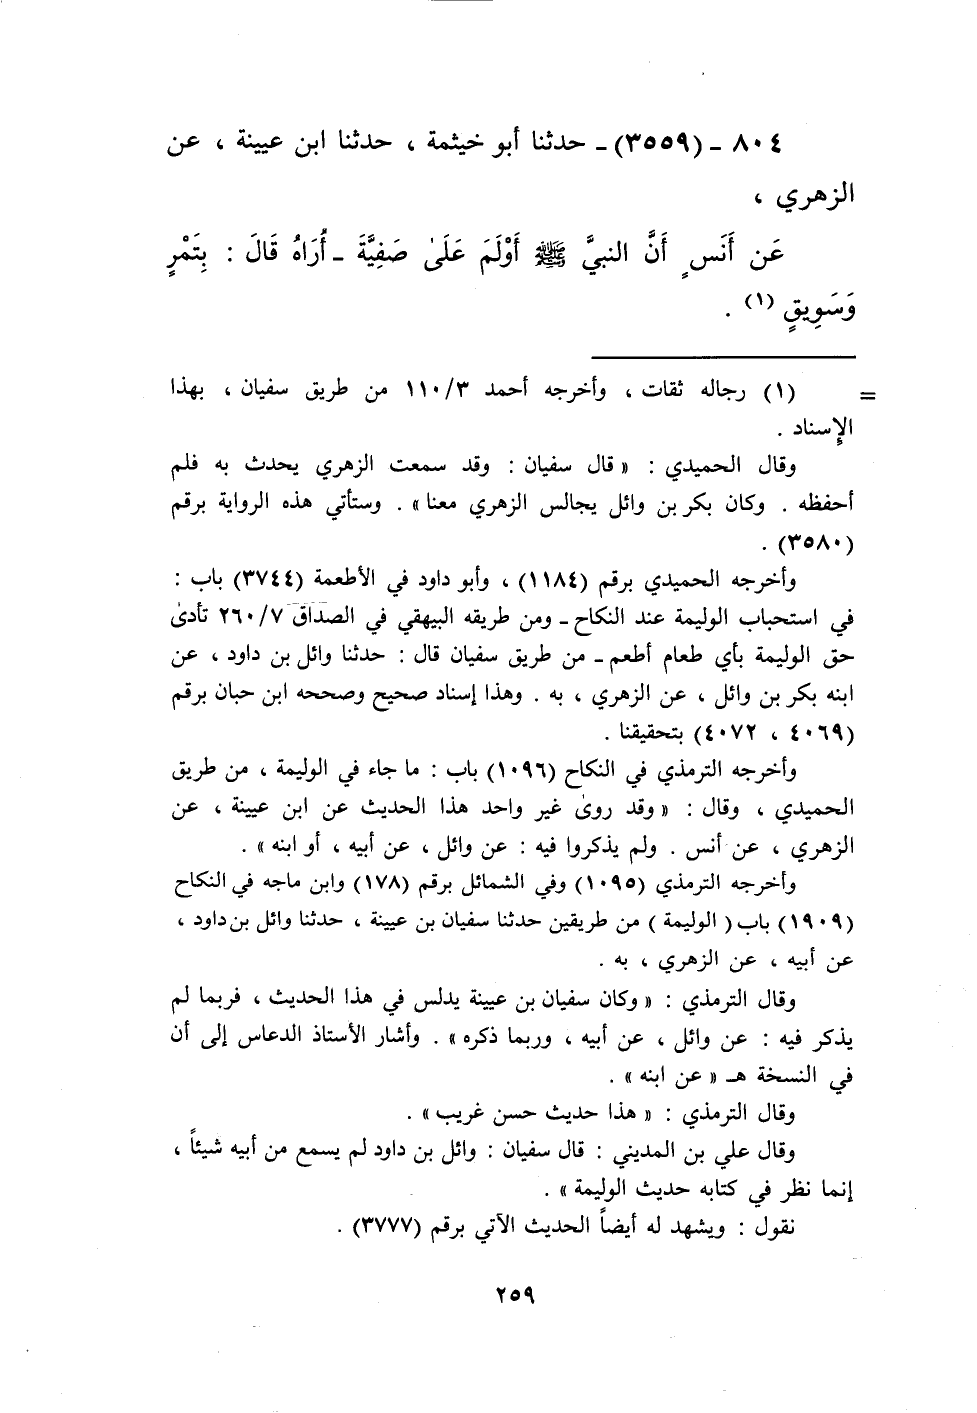 ٨٠٤ ـ (٣٥٥٩) ـ حدثنا أبو خيثمة ، حدثنا ابن عيينة ، عن
الزهري ،
عَن أَنَسٍ أَنَّ النبيَّ ﷺ أَوْلَمَ عَلَىٰ صَفِيَّةَ ـ أُرَاهُ قَالَ : بِتَمْرٍ
وَسَوِيقٍ (١) .
= (١) رجاله ثقات ، وأخرجه أحمد ٣/ ١١٠ من طريق سفيان ، بهذا
الإسناد .
وقال الحميدي : « قال سفيان : وقد سمعت الزهري يحدث به فلم
أحفظه . وكان بكر بن وائل يجالس الزهري معنا » . وستأتي هذه الرواية برقم
(٣٥٨٠) .
وأخرجه الحميدي برقم (١١٨٤) ، وأبو داود في الأطعمة (٣٧٤٤) باب :
في استحباب الوليمة عند النكاح ـ ومن طريقه البيهقي في الصداق ٧/ ٢٦٠ تأدىٰ
حق الوليمة بأي طعام أطعم ـ من طريق سفيان قال : حدثنا وائل بن داود ، عن
ابنه بكر بن وائل ، عن الزهري ، به . وهذا إسناد صحيح وصححه ابن حبان برقم
(٤٠٦٩ ، ٤٠٧٢) بتحقيقنا .
وأخرجه الترمذي في النكاح (١٠٩٦) باب : ما جاء في الوليمة ، من طريق
الحميدي ، وقال : « وقد روىٰ غير واحد هذا الحديث عن ابن عيينة ، عن
الزهري ، عن أنس . ولم يذكروا فيه : عن وائل ، عن أبيه ، أو ابنه » .
وأخرجه الترمذي (١٠٩٥) وفي الشمائل برقم (١٧٨) وابن ماجه في النكاح
(١٩٠٩) باب ( الوليمة ) من طريقين حدثنا سفيان بن عيينة ، حدثنا وائل بن داود ،
عن أبيه ، عن الزهري ، به .
وقال الترمذي : « وكان سفيان بن عيينة يدلس في هذا الحديث ، فربما لم
يذكر فيه : عن وائل ، عن أبيه ، وربما ذكره » . وأشار الأستاذ الدعاس إلى أن
في النسخة هـ « عن ابنه » .
وقال الترمذي : « هذا حديث حسن غريب » .
وقال علي بن المديني : قال سفيان : وائل بن داود لم يسمع من أبيه شيئاً ،
إنما نظر في كتابه حديث الوليمة » .
نقول : ويشهد له أيضاً الحديث الآتي برقم (٣٧٧٧) .
٢٥٩